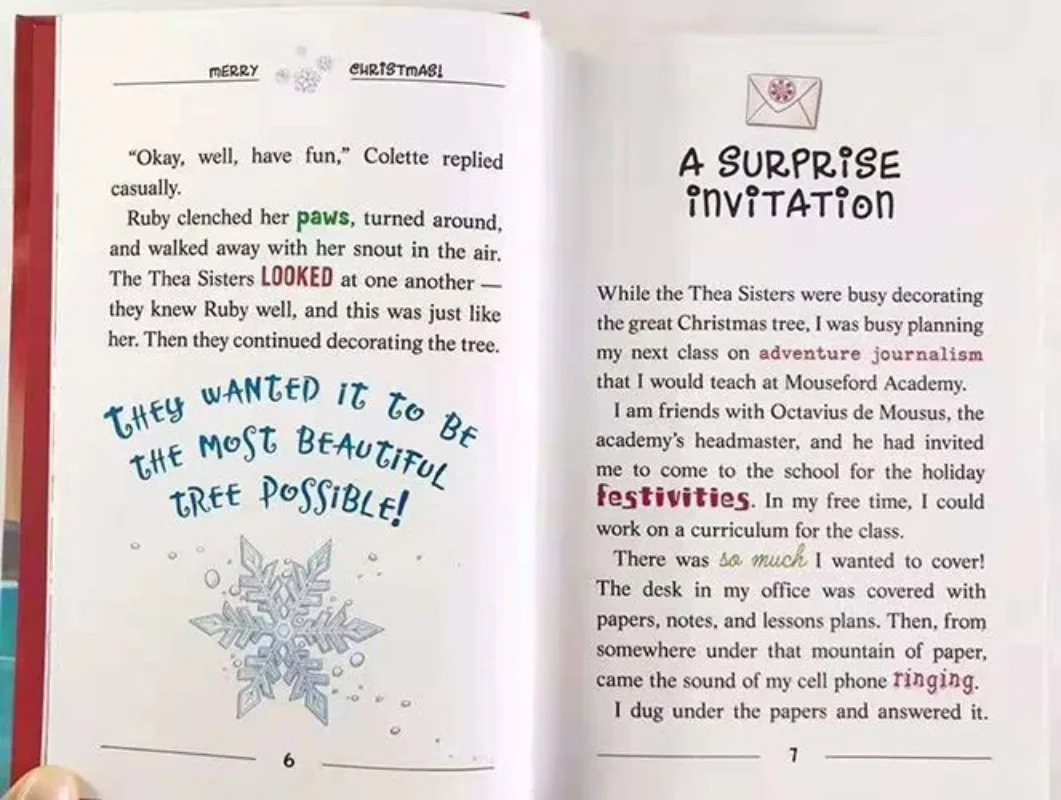 MERRY CHRISTMAS!
“Okay, well, have fun,” Colette replied
casually.
Ruby clenched her paws, turned around,
and walked away with her snout in the air.
The Thea Sisters LOOKED at one another —
they knew Ruby well, and this was just like
her. Then they continued decorating the tree.
THEY WANTED IT TO BE
THE MOST BEAUTIFUL
TREE POSSIBLE!
6
A SURPRISE
INVITATION
While the Thea Sisters were busy decorating
the great Christmas tree, I was busy planning
my next class on adventure journalism
that I would teach at Mouseford Academy.
I am friends with Octavius de Mousus, the
academy’s headmaster, and he had invited
me to come to the school for the holiday
festivities. In my free time, I could
work on a curriculum for the class.
There was so much I wanted to cover!
The desk in my office was covered with
papers, notes, and lessons plans. Then, from
somewhere under that mountain of paper,
came the sound of my cell phone ringing.
I dug under the papers and answered it.
7